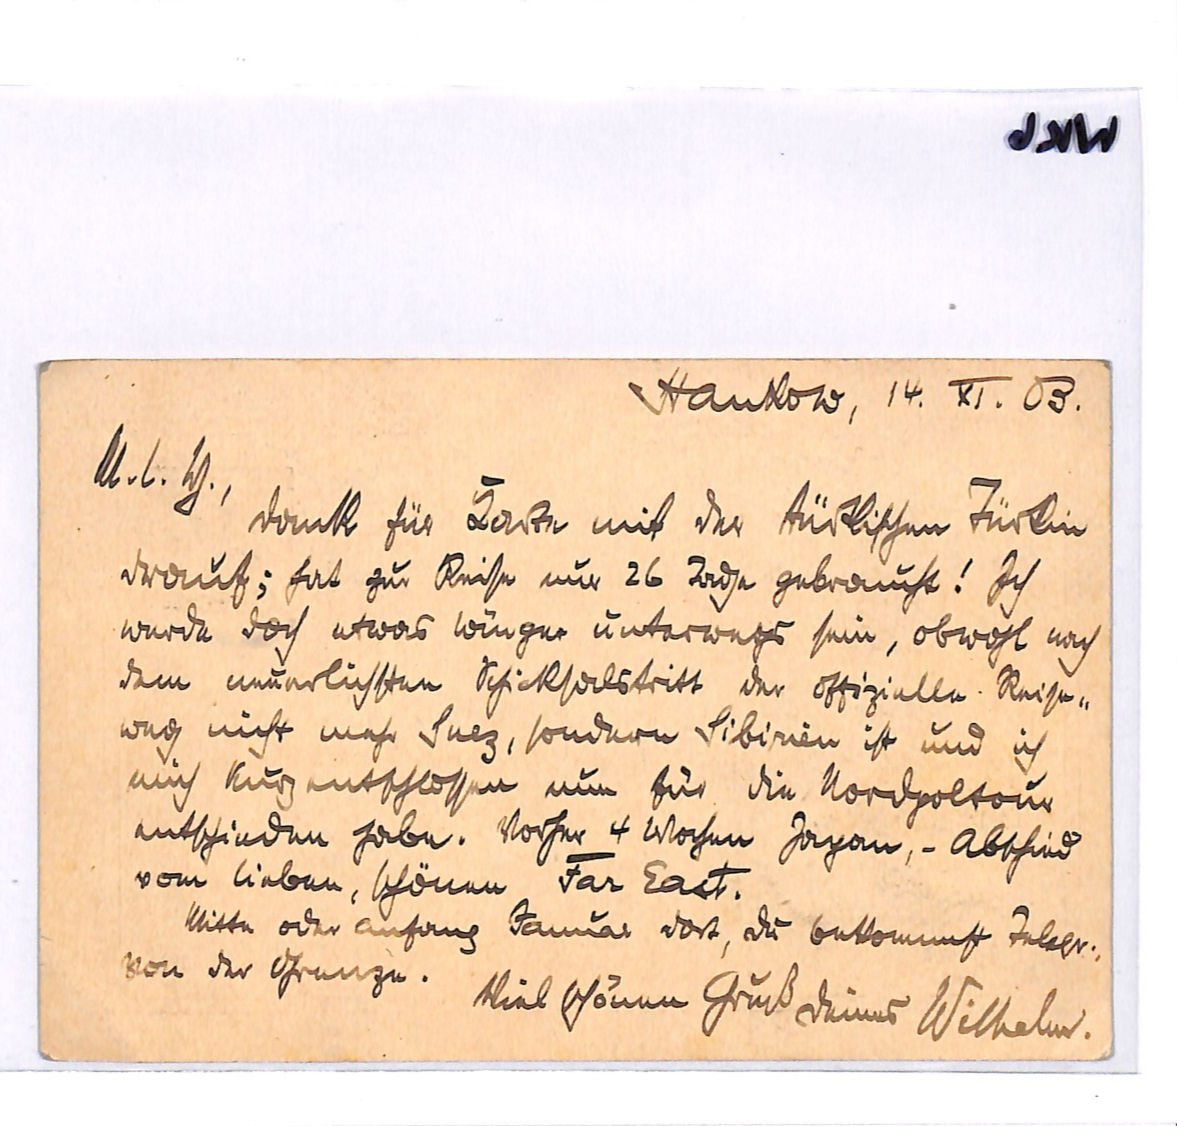 MKP
Hankow, 14. XI. 03.
M. l. W.,
Dank für Karte mit der türkischen Türkin
drauf; hat zur Reise nur 26 Tage gebraucht! Ich
werde doch etwas länger unterwegs sein, obwohl nach
dem neuerlichsten Schicksalstritt der offizielle Reise-
weg nicht mehr Suez, sondern Sibirien ist und ich
mich kurzentschlossen nun für die Nordpoltour
entschieden habe. Vorher 4 Wochen Japan, - Abschied
vom lieben, schönen Far East.
Mitte oder Anfang Januar dort, du bekommst Telegr.
von der Grenze.
Viel schönen Gruß deines Wilhelm.